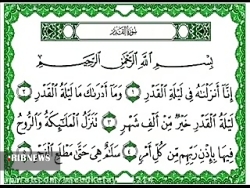 سُورَةُ الْقَدْرِ
بِسْمِ اللَّهِ الرَّحْمَٰنِ الرَّحِيمِ
إِنَّا أَنزَلْنَاهُ فِي لَيْلَةِ الْقَدْرِ ۝١ وَمَا أَدْرَاكَ مَا لَيْلَةُ الْقَدْرِ ۝٢
لَيْلَةُ الْقَدْرِ خَيْرٌ مِّنْ أَلْفِ شَهْرٍ ۝٣ تَنَزَّلُ الْمَلَائِكَةُ وَالرُّوحُ
فِيهَا بِإِذْنِ رَبِّهِم مِّن كُلِّ أَمْرٍ ۝٤ سَلَامٌ هِيَ حَتَّىٰ مَطْلَعِ الْفَجْرِ
IRIBNEWS